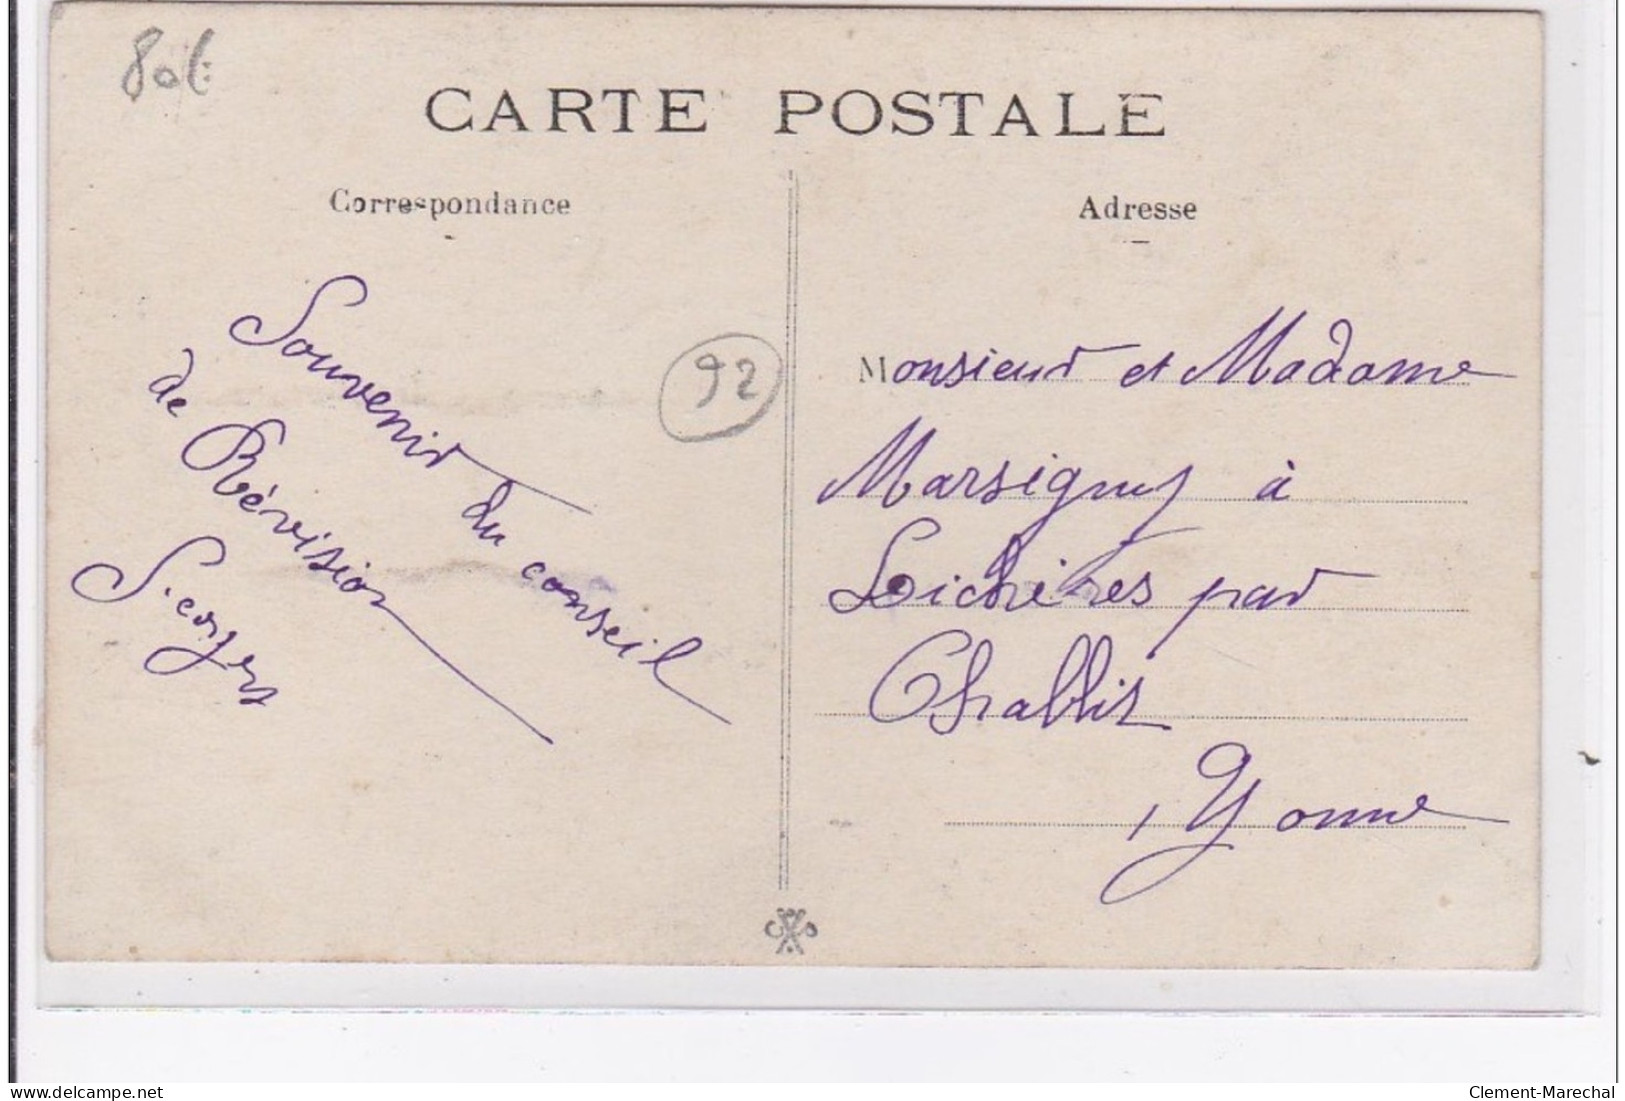 CARTE POSTALE
Correspondance
Adresse
Souvenir du conseil
de Révision
92
Monsieur et Madame
Marsigny à
Lichères par
Chablis
, Yonne
Clement-Marechal